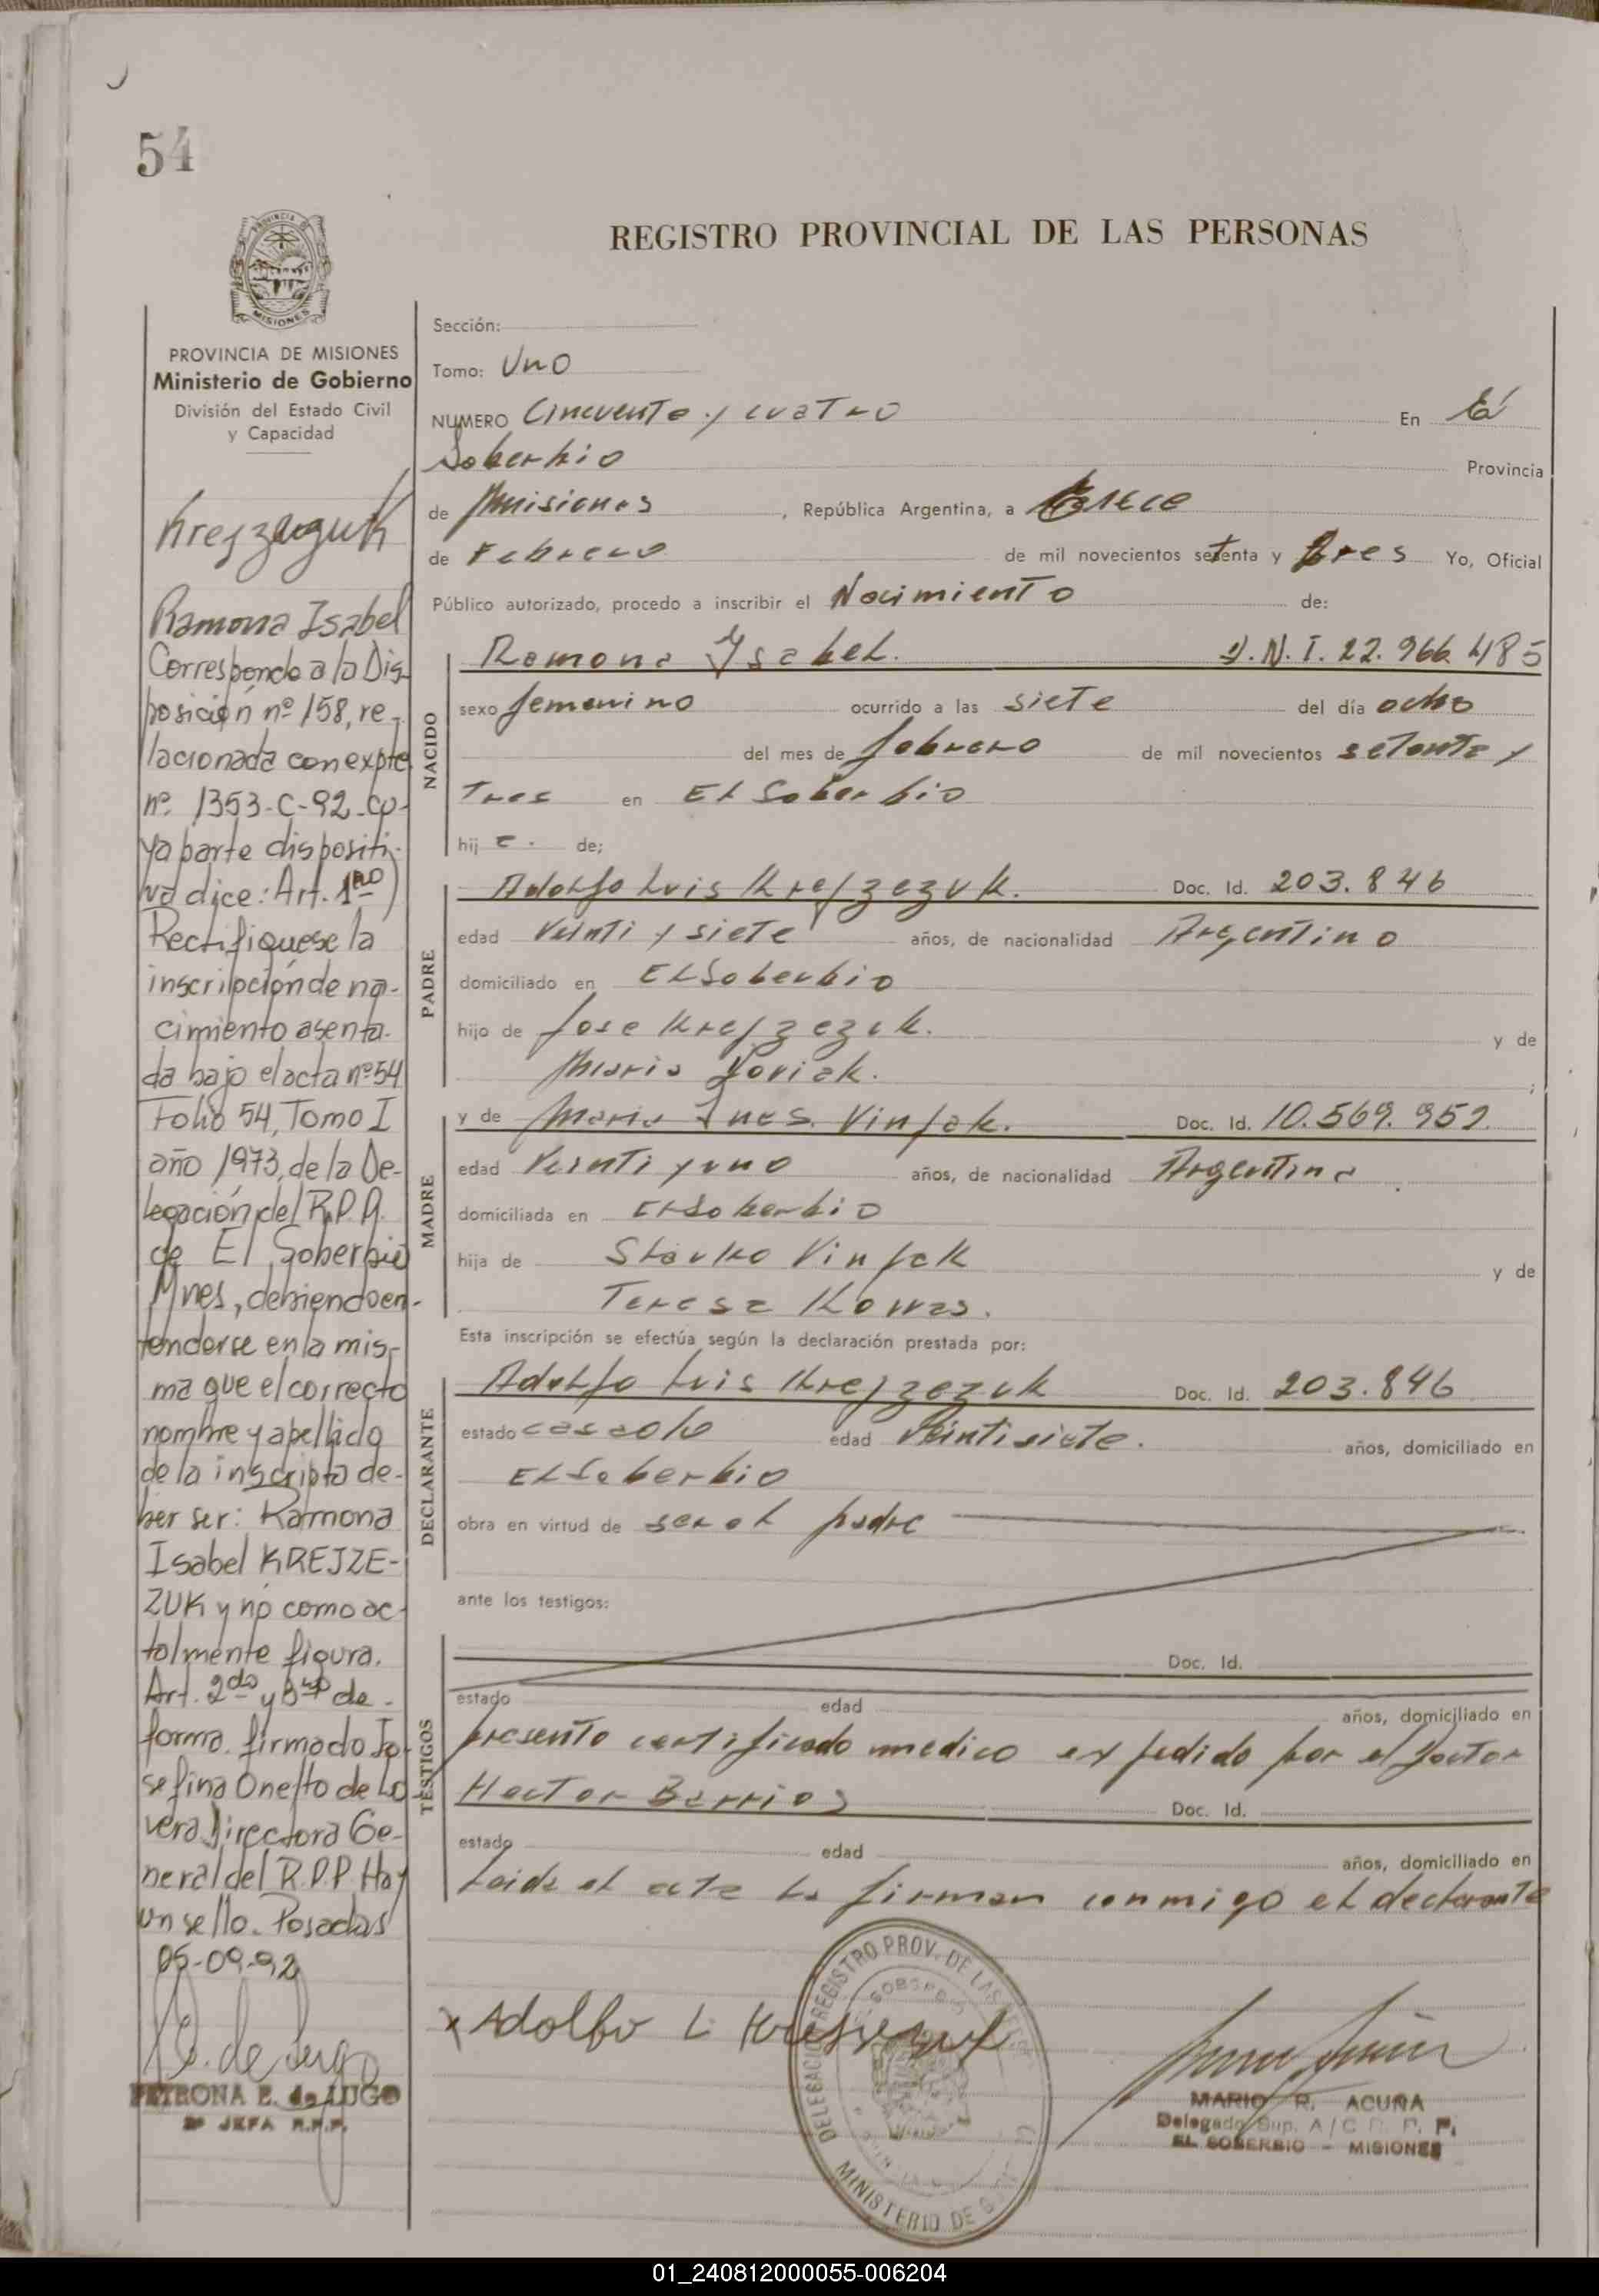 54
PROVINCIA DE
MISIONES
REGISTRO PROVINCIAL DE LAS PERSONAS
PROVINCIA DE MISIONES
Ministerio de Gobierno
División del Estado Civil
y Capacidad
Ramona Isabel
Corresponde a la Dis-
posición nº 158, re-
lacionada con expte
nº 1353-C-92-cu-
ya parte dispositi-
va dice: Art. 1ro)
Rectifiquese la
inscripción de na-
cimiento asenta-
da bajo el acta nº 54
Folio 54, Tomo I
año 1973, de la De-
legación del R.P.P.
de El Soberbio
Mnes, debiendo en-
tenderse en la mis-
ma que el correcto
nombre y apellido
de la inscripta de-
ber ser: Ramona
Isabel KREJZE-
ZUK y no como ac-
talmente figura.
Art. 2do y 3ro de
forma. firmado Jo-
sefina Onetto de Lo
vera Directora Ge-
neral del R.P.P. Hay
un sello. Posadas
05-09-92
PETRONA E. de LUGO
2º JEFA R.P.P.
Sección:
Tomo: Uno
NUMERO Cincuenta y cuatro En El
Soberbio Provincia
de Misiones, República Argentina, a trece
de Febrero de mil novecientos setenta y tres Yo, Oficial
Público autorizado, procedo a inscribir el Nacimiento de:
NACIDO
Ramona Ysabel. D.N.I. 22.966.485
sexo femenino ocurrido a las siete del día ocho
del mes de febrero de mil novecientos setenta y
Tres en El Soberbio
hija. de;
PADRE
Adolfo Luis Krejzezuk. Doc. Id. 203.846
edad Veinti y siete años, de nacionalidad Argentino
domiciliado en El Soberbio
hijo de Jose Krejzezuk. y de
Maria ;
MADRE
y de Maria Ines Vinjak. Doc. Id. 10.569.952.
edad Veinti y uno años, de nacionalidad Argentina
domiciliada en El Soberbio
hija de Slavko Vinjak y de
Teresa
Esta inscripción se efectúa según la declaración prestada por:
DECLARANTE
Adolfo Luis Krejzezuk Doc. Id. 203.846
estado casado edad Veintisiete. años, domiciliado en
El Soberbio
obra en virtud de ser el padre
ante los testigos:
TESTIGOS
Doc. Id.
estado edad años, domiciliado en
presento certificado medico expedido por el Doctor
Hector Barrios Doc. Id.
estado edad años, domiciliado en
Leida el acta la firman conmigo el declarante
x Adolfo L.
DELEGACION REGISTRO PROV. DE LAS
MINISTERIO DE G
MARIO R. ACUÑA
Delegado Sup. A/C R. P. P.
EL SOBERBIO - MISIONES
01_240812000055-006204